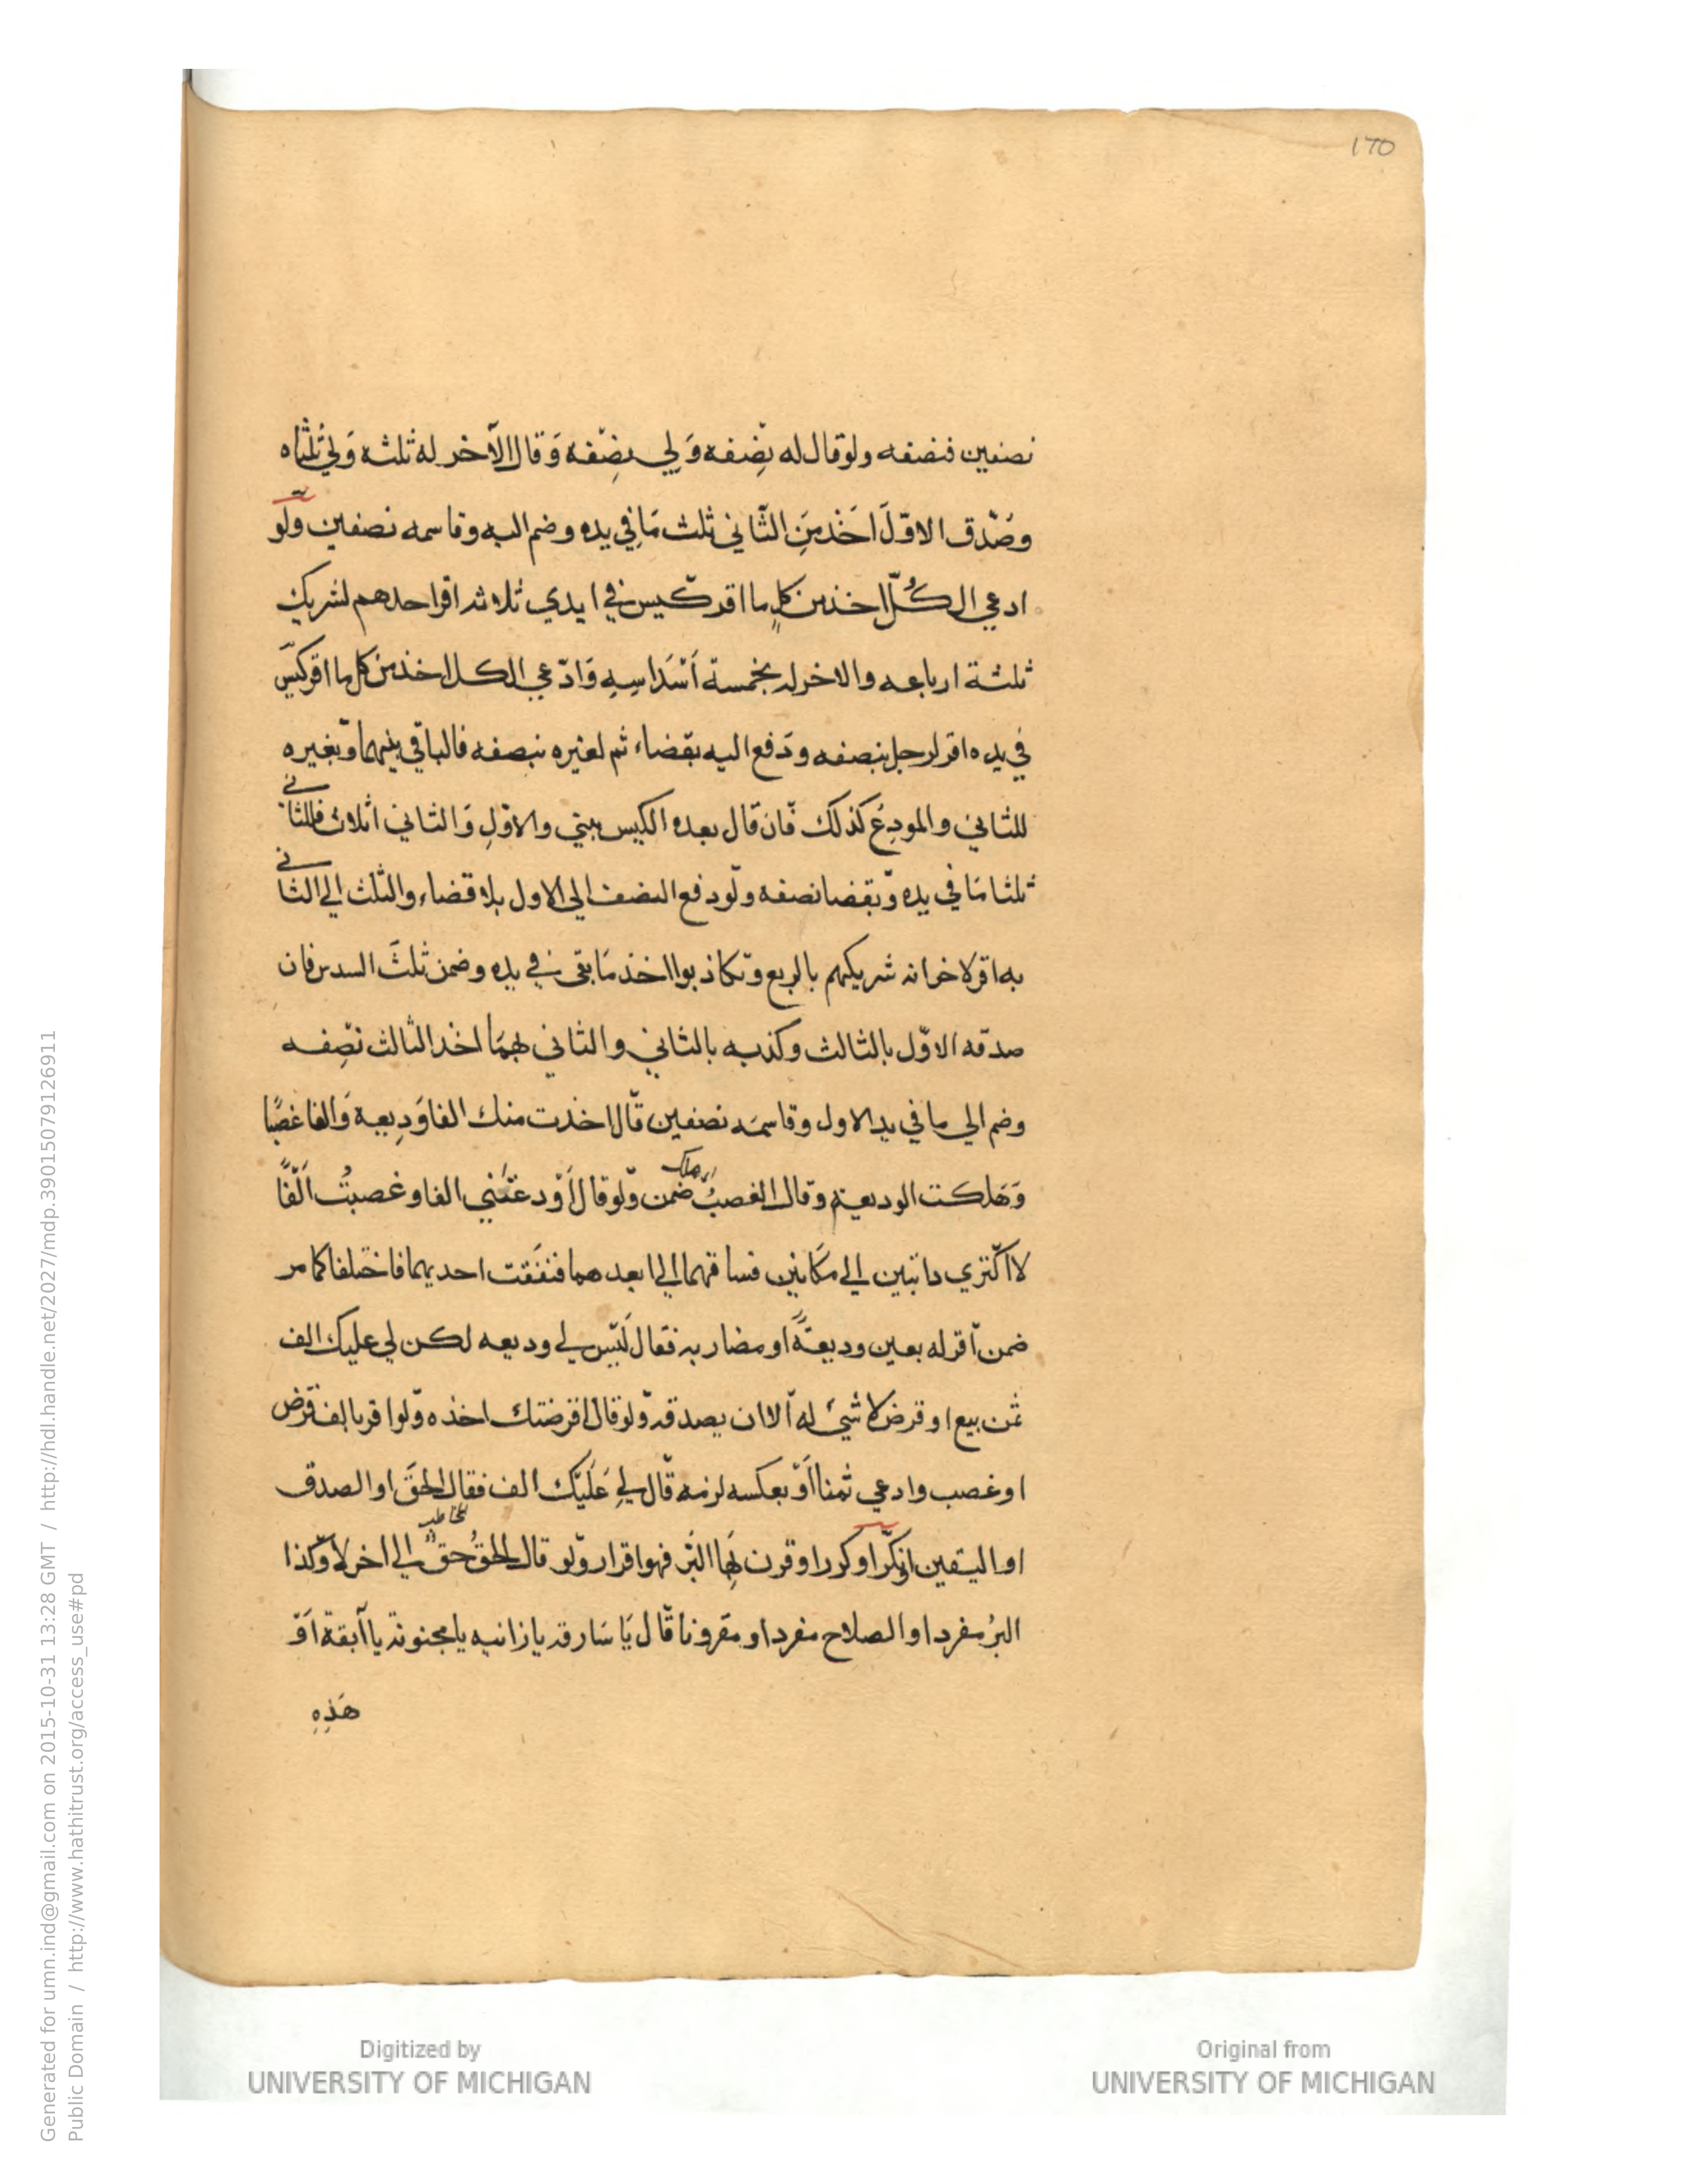 170
نصفين فنصفه ولو قال له نِصْفه وَلي نِصْفه وَقال الآخر له ثلثه وَلي ثُلثاه
وصَدّق الاوّلَ اخَذ مِنَ الثّاني ثلث مَا في يده وضم اليه وقاسمه نصفين ولَو
ادعي الكُلّ اخذ من كلٍ ما اقر كيس في ايدي ثلاثة اقر احدهم لشريك
ثلثة ارباعه والاخر له بخمسة اَسْدَاسِهِ وَادّعي الكل اخذ من كل ما اقر كيس
في يده اقر لرجل بنصفه ودَفع اليه بقضاء ثم لغيره بنصفه فالباقي بينهما وبغيره
للثاني والمودِعُ كذلك فان قال بعده الكيس بيني والاوّلِ وَالثاني اثلاث فللثاني
ثلثا مَا في يده وَبقضا نصفه ولَو دفع النصف الي الاول بلا قضاء والثلث الي الثاني
به اقر لاخر انه شريكهم بالربع وتكاذبوا اخذ مَا بقى في يده وضمن ثلثَ السدس فان
صدقه الاوّل بالثالث وكذبه بالثاني والثاني بهمَا اخذ الثالث نصِفه
وضم الي ما في يد الاول وقاسمَه نصفين قال اخذت منك الفا وَدِيعة وَالفا غصبًا
وَهَلكت الوديعة وقال الغصبُ ضمن ولو قال اَوْدعْتَني الفا وغصبتُ اَلْفًا
لا اكْتري دابتين الي مكَانين فسا قهما الي ابعدهما فنفَقت احديهما فاختلفا كما مر
ضمن اقر له بعين وديعةً او مضاربه فقال لَيْس لي وديعه لكن لي عليك الف
ثمن بيع او قرض لا شيئ له الا ان يصدقه ولو قال اقرضتك اخذه ولو اقر بالف قرض
او غصب وادعي ثمنا اَوْ بعكسه لزمه قال لي عَلَيْك الف فقال الحقَ او الصدق
او اليقين او نكّر او كرر او قرن بهَا البرّ فهو اقرار ولو قال الحقُ حقٌ الي اخر لا وكذا
البرُ مفرد او الصلاح مفرد او مقرونا قال يَا سَارقه يا زانيه يا مجنونة يا آبقة اَوْ
هَذِهِ
Digitized by
UNIVERSITY OF MICHIGAN
Original from
UNIVERSITY OF MICHIGAN
Generated for umn.ind@gmail.com on 2015-10-31 13:28 GMT / http://hdl.handle.net/2027/mdp.39015079126911
Public Domain / http://www.hathitrust.org/access_use#pd